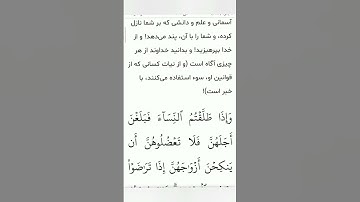 آسمانی و علم و دانشی که بر شما نازل
کرده، و شما را با آن، پند می‌دهد! و از
خدا بپرهیزید! و بدانید خداوند از هر
چیزی آگاه است (و از نیات کسانی که از
قوانین او، سوء استفاده می‌کنند، با
خبر است)!
وَإِذَا طَلَّقْتُمُ ٱلنِّسَآءَ فَبَلَغْنَ
أَجَلَهُنَّ فَلَا تَعْضُلُوهُنَّ أَن
يَنكِحْنَ أَزْوَٰجَهُنَّ إِذَا تَرَٰضَوْا۟